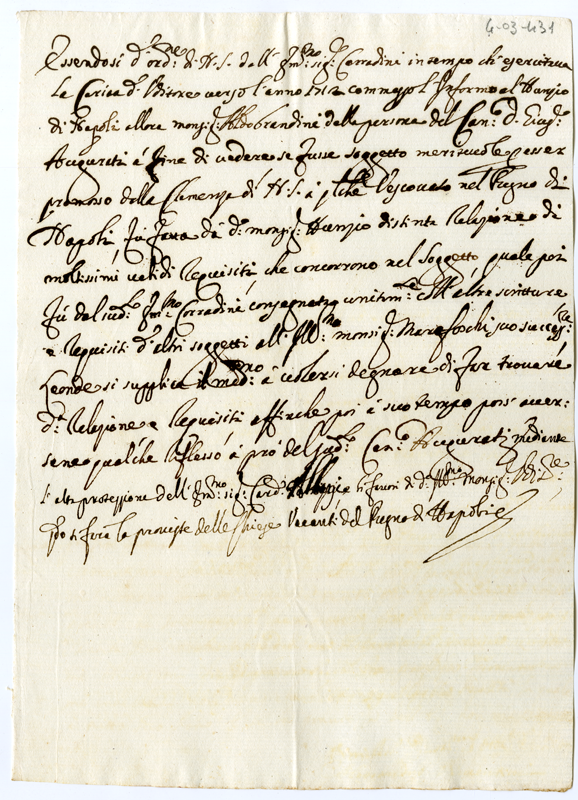 4-03-431
Essendosi d'ord:ne di N.S. dall' Em:mo sig:r Corradini in tempo ch'esercitava
la Carica d'Uditore verso l'anno 1712 commesso l'Informo al Nunzio
di Napoli allora monsig:r Aldobrandini della persona del Can:co D.
Accurati á fine di vedere se fusse soggetto meritevole d'esser
promosso dalla Clemenza di N.S. á Vescovato nel Regno di
Napoli fú fatta dá d:o monsig:r Nunzio distinta Relazione di
moltissimi validi Requisiti che concorrono nel soggetto quale poi
fú dal sud:o Em:mo Corradini consegnata unitm:e coll'altre scritture
e Requisiti d'altri soggetti all' Ill:mo monsig:r Marefoschi suo success:re
Leonde si supplica il med:mo á volersi degnare di far trovare
d:a Relazione e Requisiti affinche poi á suo tempo poss' aver-
sene qualche riflesso á pro' del sud:o Can:co Accurati mediante
l'alta protezzione dell' Em:mo sig:r Card: e li favori di d:o Ill:mo Monsig:r
q:do si farà la provista delle Chiese Vacanti del Regno di Napoli